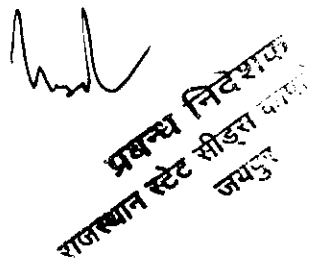 प्रबन्ध निदेशक
राजस्थान स्टेट सीड्स
जयपुर